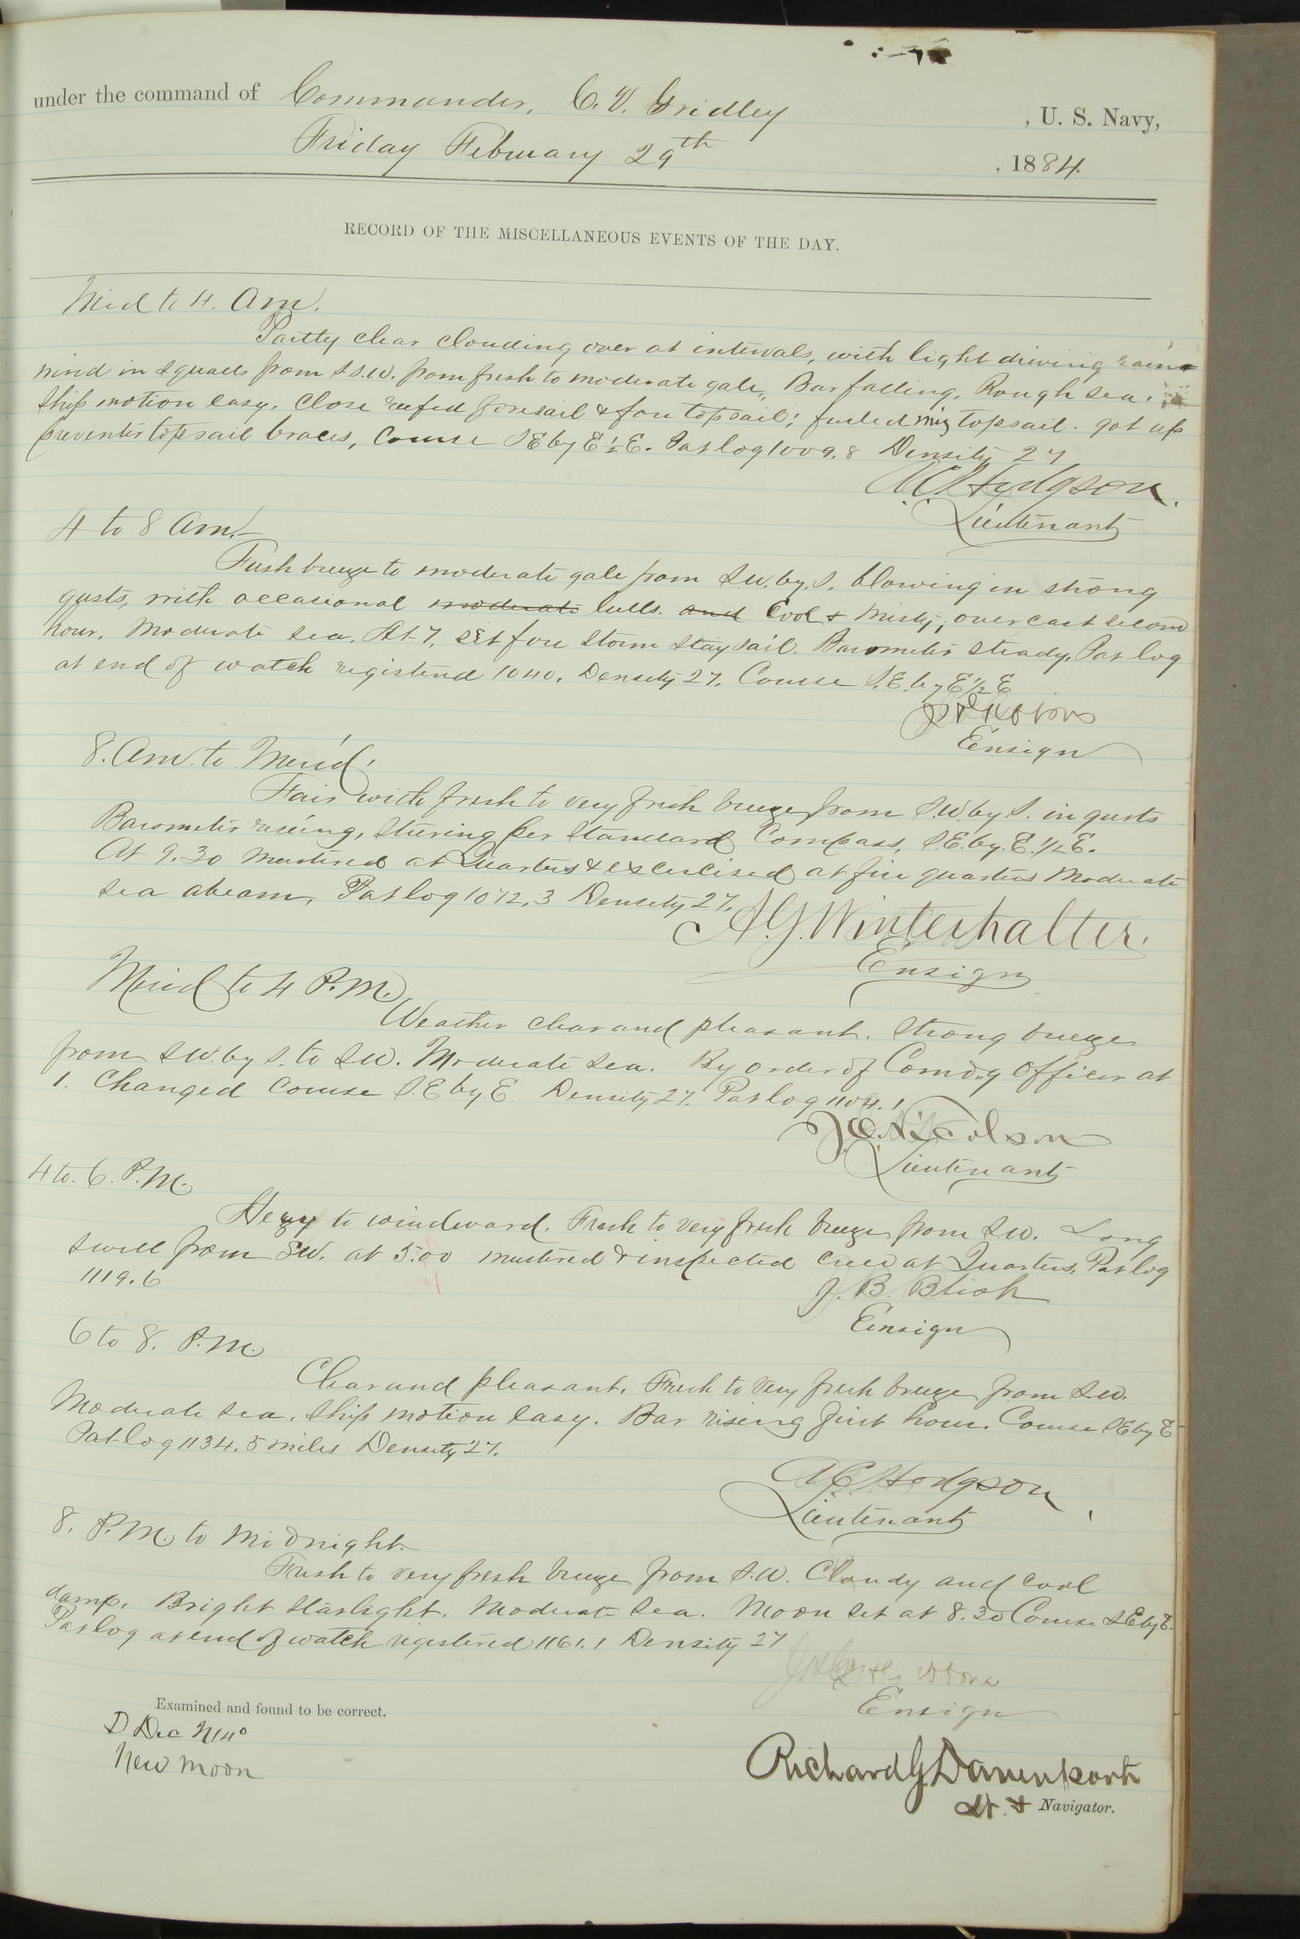 under the command of Commander, C. V. Gridley , U. S. Navy,
Friday February 29th , 1884.
RECORD OF THE MISCELLANEOUS EVENTS OF THE DAY.
Mid to 4. Am.
Partly clear clouding over at intervals, with light driving rain
wind in squalls from S.S.W. from fresh to moderate gale, Bar falling, Rough sea,
Ship motion easy. Close reefed foresail & fore topsail; furled miz topsail. got up
preventer topsail braces, Course SE by E ½ E. Pat log 1009.8 Density 27
A C Hodgson.
Lieutenant
4 to 8 Am.
Fresh breeze to moderate gale from S.W. by. S. blowing in strong
gusts, with occasional moderate lulls. and Cool & misty, overcast second
hour. Moderate sea. At 7, set fore storm staysail. Barometer steady. Pat log
at end of watch registered 1040. Density 27. Course S.E. by E ½ E
Ensign
8. Am. to Merid.
Fair with fresh to very fresh breeze from S.W. by S. in gusts
Barometer raising, Steering per Standard Compass, SE. by. E. ½ E.
At 9.30 mustered at Quarters & exercised at fire quarters Moderate
sea abeam, Pat log 1072.3 Density 27.
A. G. Winterhalter.
Ensign
Merid to 4 P.M.
Weather clear and pleasant. Strong breeze
from SW. by S. to SW. Moderate sea. By order of Comd.g Officer at
1. Changed course S.E by. E Density 27. Pat log 1104.1
J. O. Nicolson
Lieutenant
4 to. 6. P.M.
Hazy to windward. Fresh to very fresh breeze from SW. Long
swell from SW. at 5.00 mustered & inspected crew at Quarters, Pat log
1119.6
J. B. Blish
Ensign
6 to 8. P.M.
Clear and pleasant. Fresh to very fresh breeze from S.W.
Moderate sea. Ship motion easy. Bar rising first hour. Course SE by E
Pat log 1134.5 miles Density 27.
A C. Hodgson
Lieutenant
8. P.M. to Midnight.
Fresh to very fresh breeze from S.W. Cloudy and cool
damp. Bright starlight. Moderate sea. Moon set at 8.20 Course SE by E.
Pat log at end of watch registered 1161.1 Density 27
Ensign
Examined and found to be correct.
D Dec N 14°
New moon
Richard G Davenport
Lt. & Navigator.